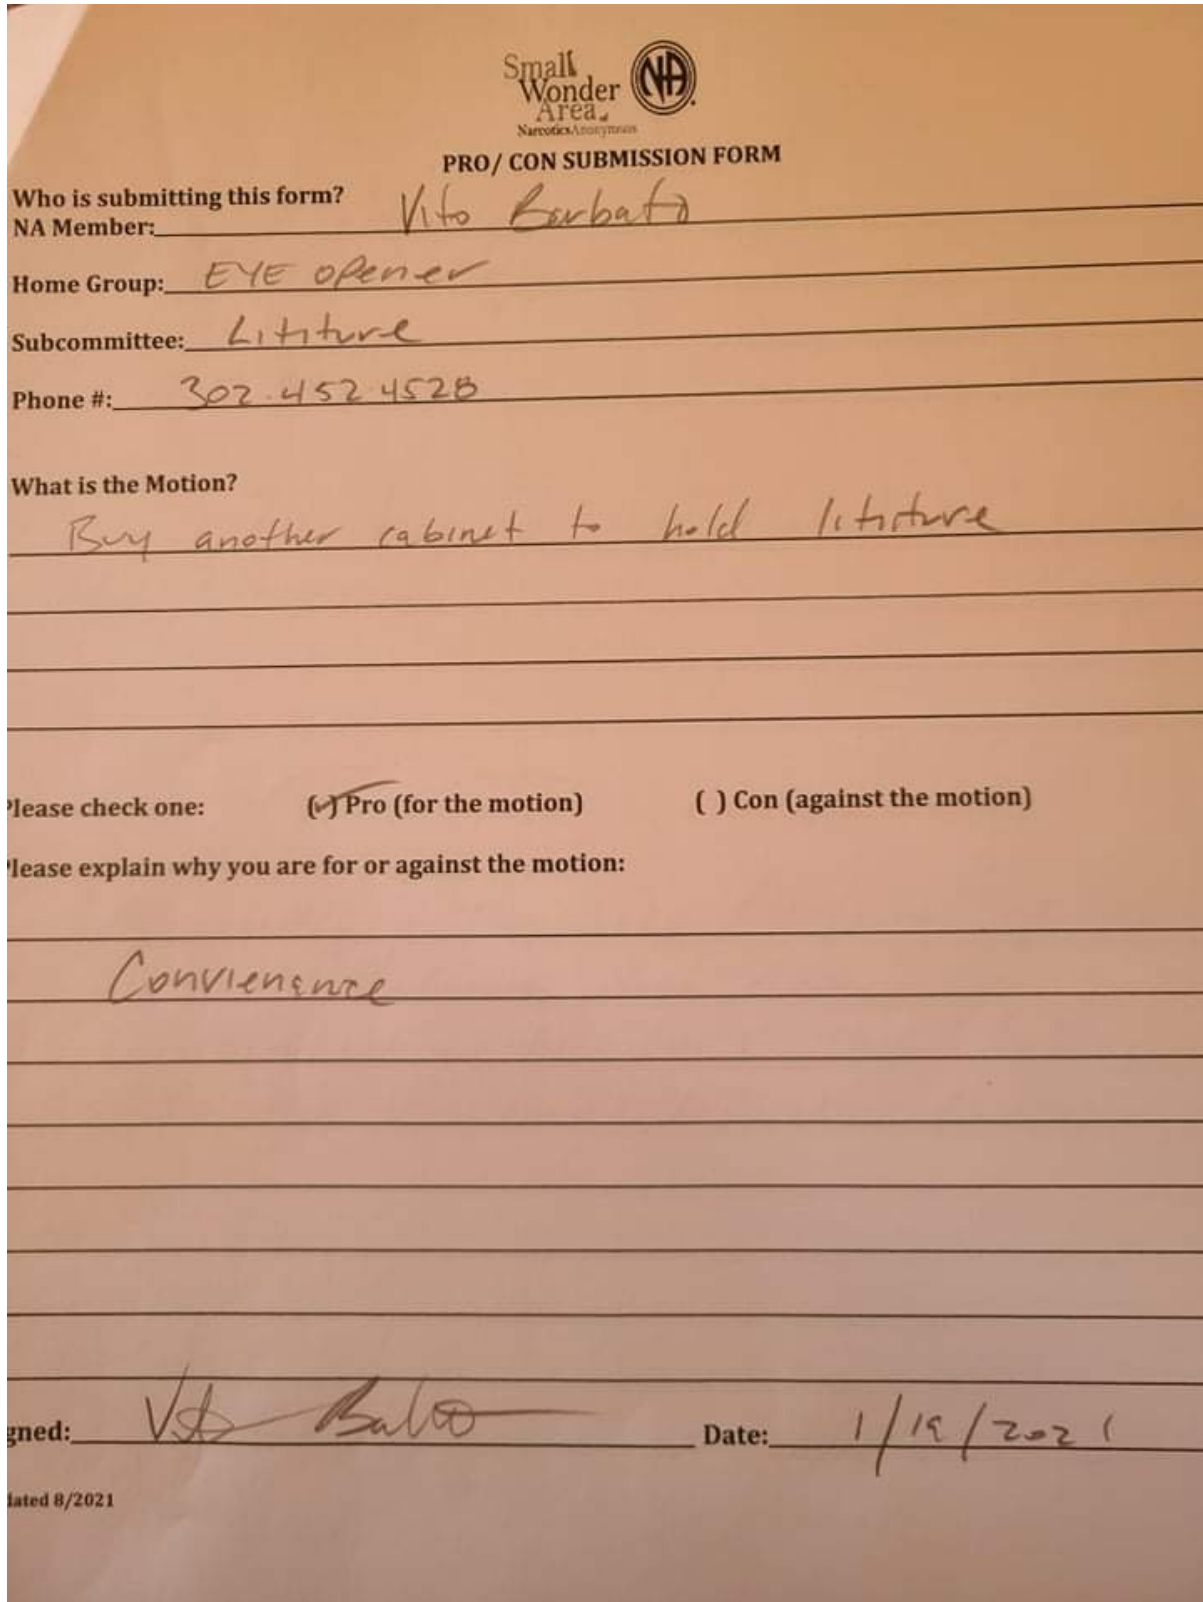 Small
Wonder
Area of
Narcotics Anonymous
NA
PRO/ CON SUBMISSION FORM
Who is submitting this form?
NA Member: Vito Barbato
Home Group: EYE opener
Subcommittee: Lititure
Phone #: 302.452.4528
What is the Motion?
Buy another cabinet to hold lititure
Please check one: (✓) Pro (for the motion) ( ) Con (against the motion)
lease explain why you are for or against the motion:
Convienence
gned: Vito Barbato Date: 1/19/2021
dated 8/2021